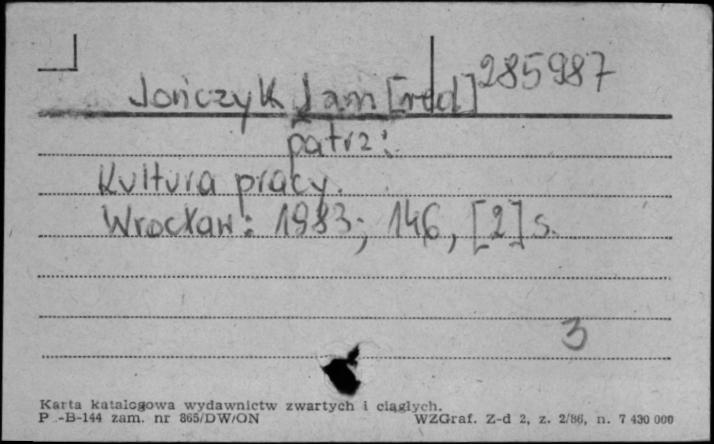 285987
Jończyk Jan [red]
patrz:
Kultura pracy.
Wrocław: 1983; 146, [2] s.
3
Karta katalogowa wydawnictw zwartych i ciągłych.
P -B-144 zam. nr 865/DW/ON WZGraf. Z-d 2, z. 2/86, n. 7 430 000